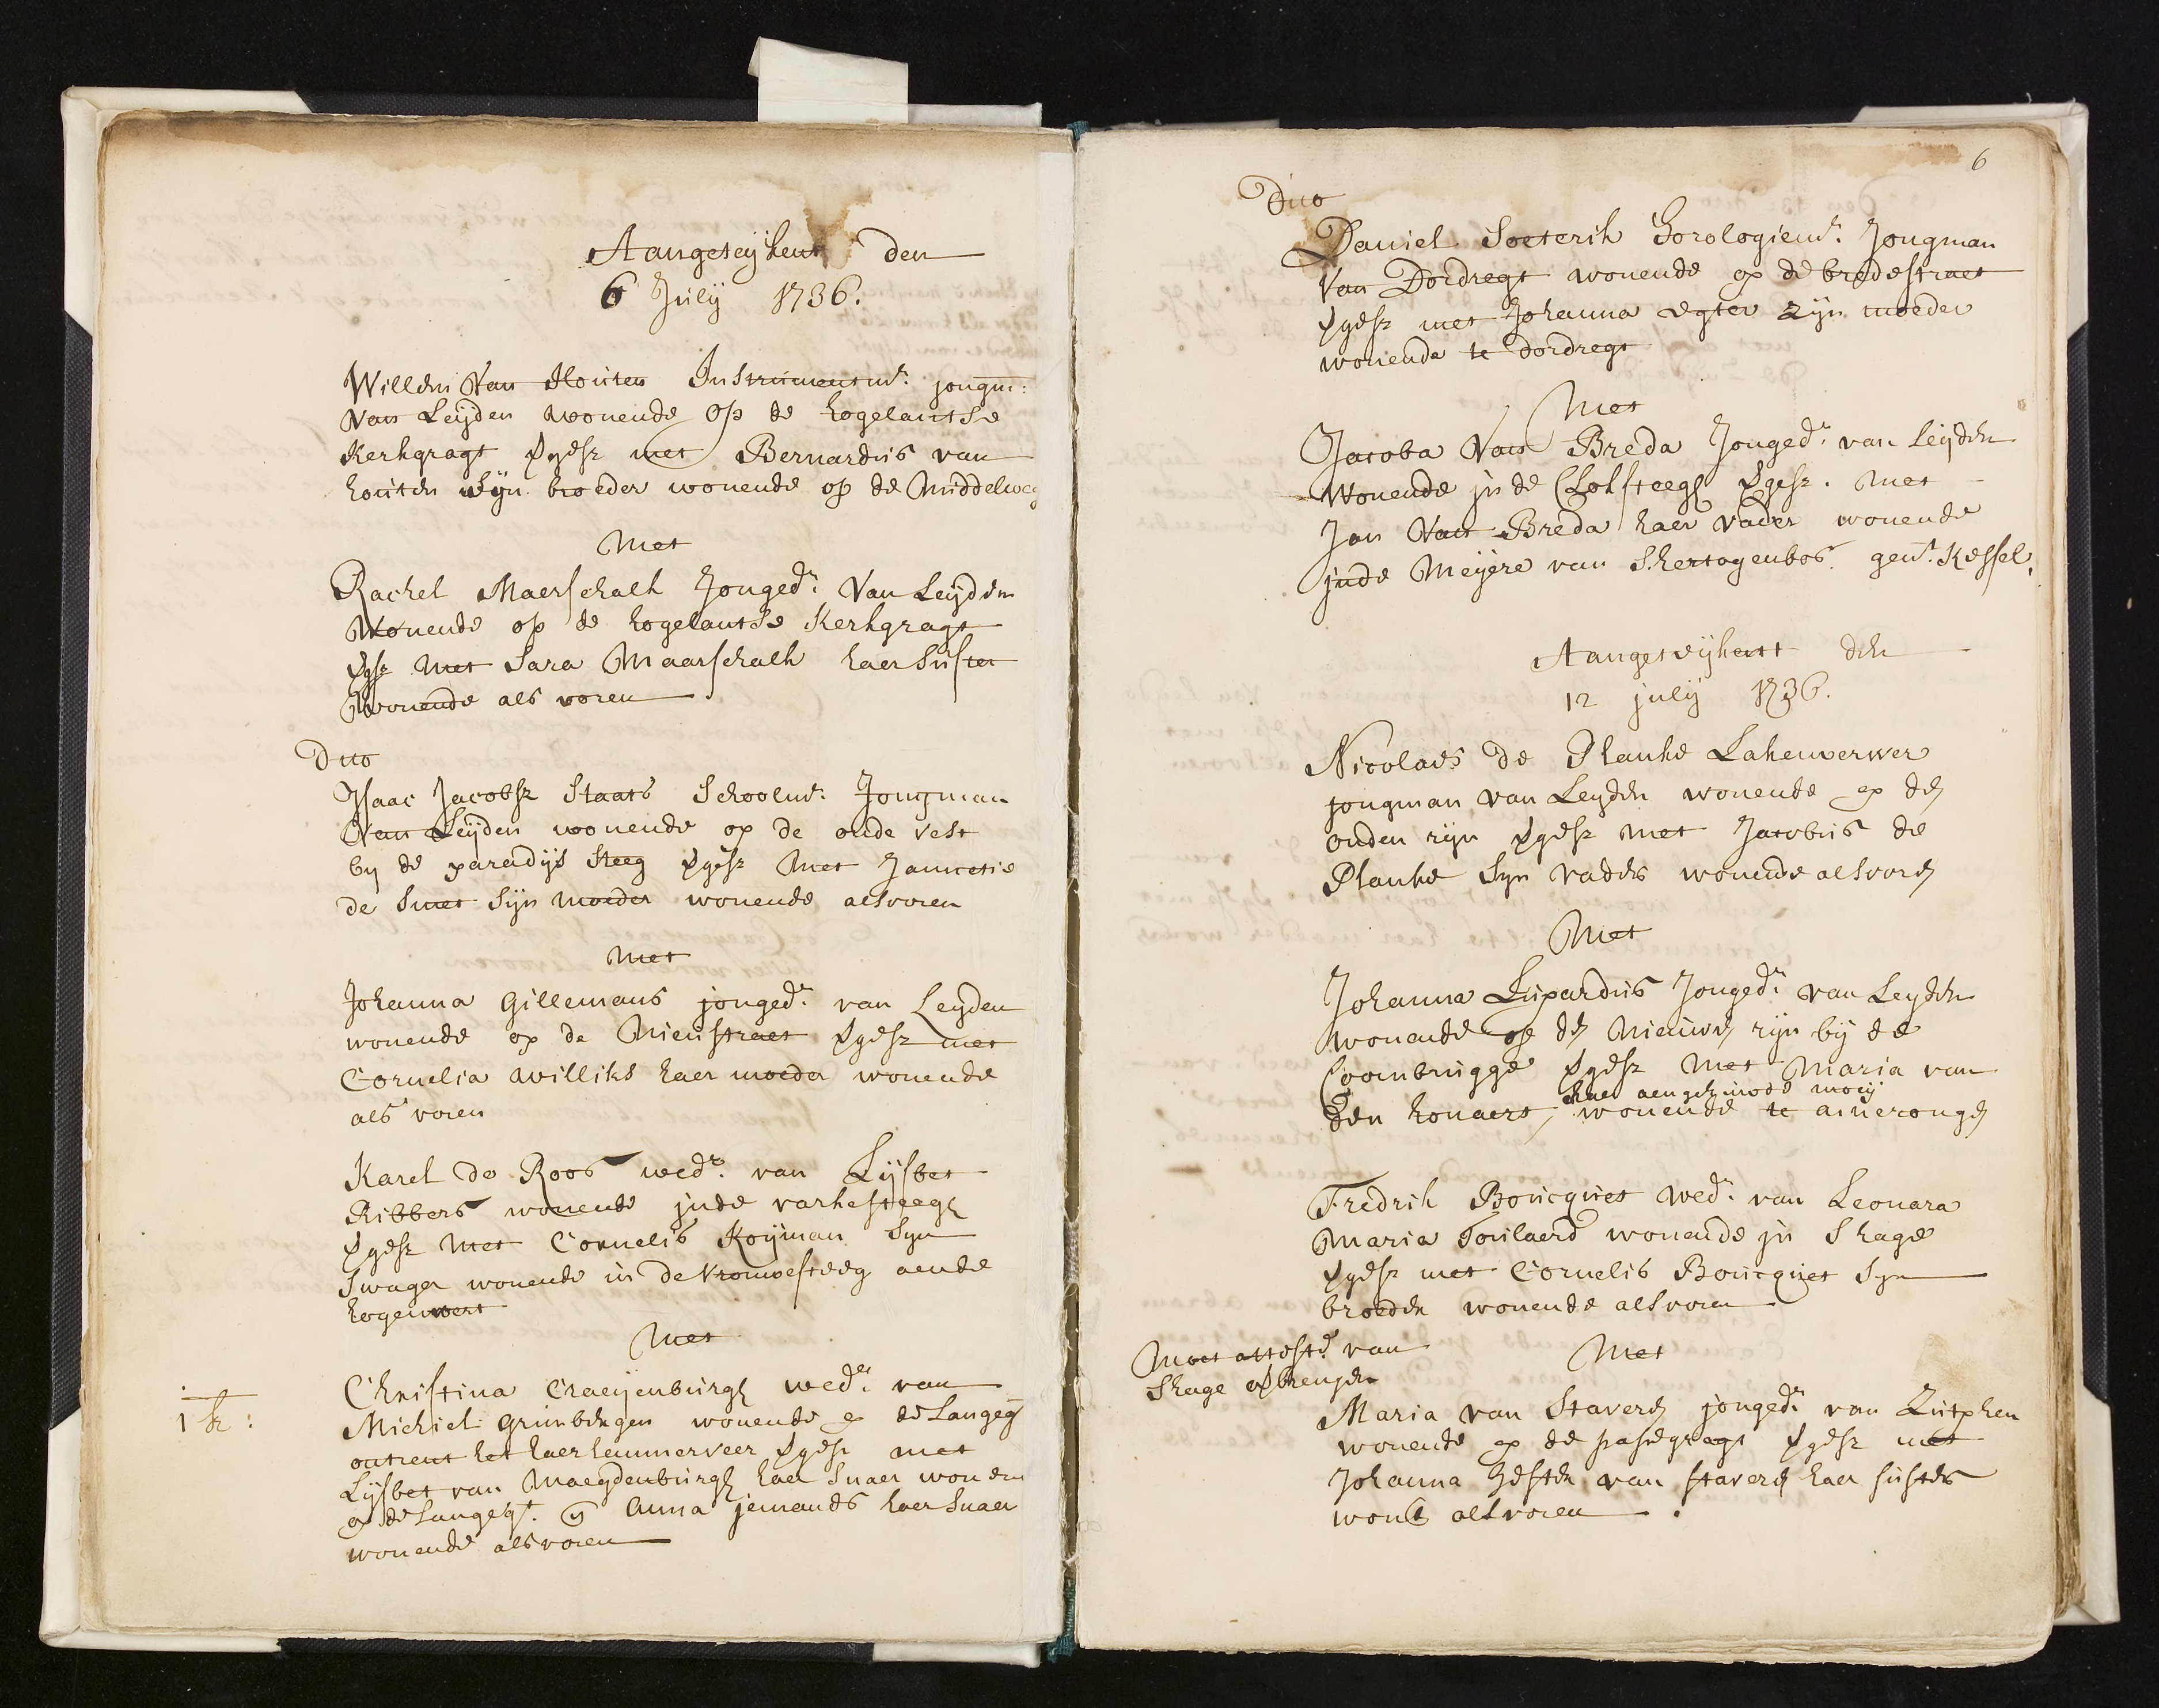 Aangeteijkent den
6 Julij 1736.
Willem Van Houten Instrumentmr. jongm:
Van Leijden wonende op de hogelantse
Kerkgragt vgest met Bernardus van
houten sijn broeder wonende op de Middelweg
Met
Rachel Maerschalk Jongedr. Van Leijden
Wonende op de hogelantse Kerkgragt
vgest met Sara Maarschalk haer suster
Wonende als voren
Dito
Isaac Jacobsz Staats Schoolmr. Jongman
Van Leijden wonende op de oude vest
bij de paradijs steeg vgest met Jannetie
de Smet Sijn moeder wonende als voren
met
Johanna Gillemans jongedr. van Leyden
wonende op de Nieustraet vgest met
Cornelia Williks haer moeder wonende
als voren
Karel de Roos wedr. van Lijsbet
Ribbers wonende inde varkesteegh
vgest met Cornelis Koijman Syn
Swager wonende in de Vrouwesteeg aende
hogewoert
Met
Christina Craeyenburgh wede. van
1 k:
Michiel Grunbergen wonende op de Langeg
ontrent het haerlemmerveer vgest met
Lijsbet van Maegdenburgh haer Snaer wonen
op de Langegt. en Anna jemands haer Snaer
wonende als voren
6
Dito
Daniel Soeterik Horologiemr. Jongman
Van Dordregt wonende op de bredestraet
vgest met Johanna Egter zijn moeder
wonende te dordregt
Met
Jacoba Van Breda Jongedr. van Leijden
Wonende in de Cloksteegh vgest. met
Jan Van Breda haer vader wonende
inde Meyere van Shertogenbos gent. Kessel.
Aangeteijkent den
12 julij 1736.
Nicolaes de Planke Lakenverwer
jongman van Leyden wonende op den
ouden rijn vgest met Jacobus de
Planke Syn vader wonende als voren
Met
Johanna Lupardus Jongedr. van Leyden
wonende op den Nieuwen rijn bij de
Coornbrugge vgest met Maria van
haer aengehuwde moeij
den honaert, wonende te amerongen
Fredrik Boucquet wedr. van Leonara
Maria Foulaerd wonende in Shage
vgest met Cornelis Boucquet Syn
broeder wonende als voren
Moet atteste. van
Shage opbrengen
Met
Maria van Staveren jongedr. van Zutphen
wonende op de papegragt vgest met
Johanna Hester van Staveren haer suster
wont als voren.